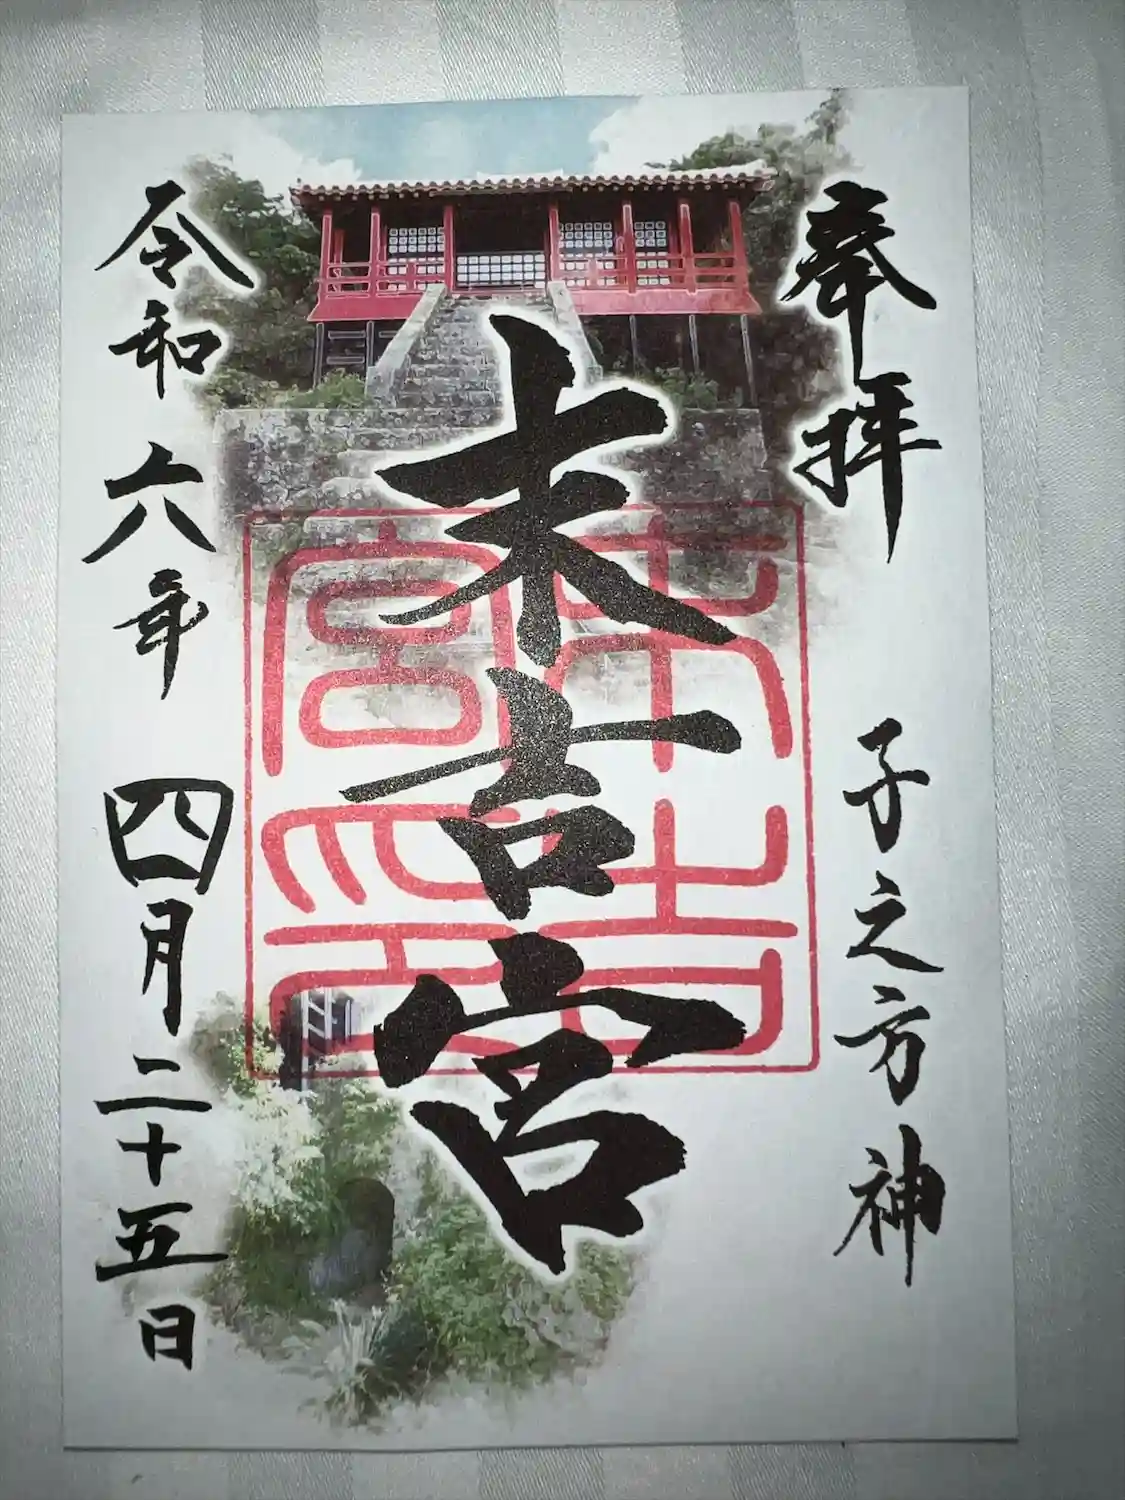 奉拝
子之方神
末吉宮
末吉宮印
令和六年四月二十五日